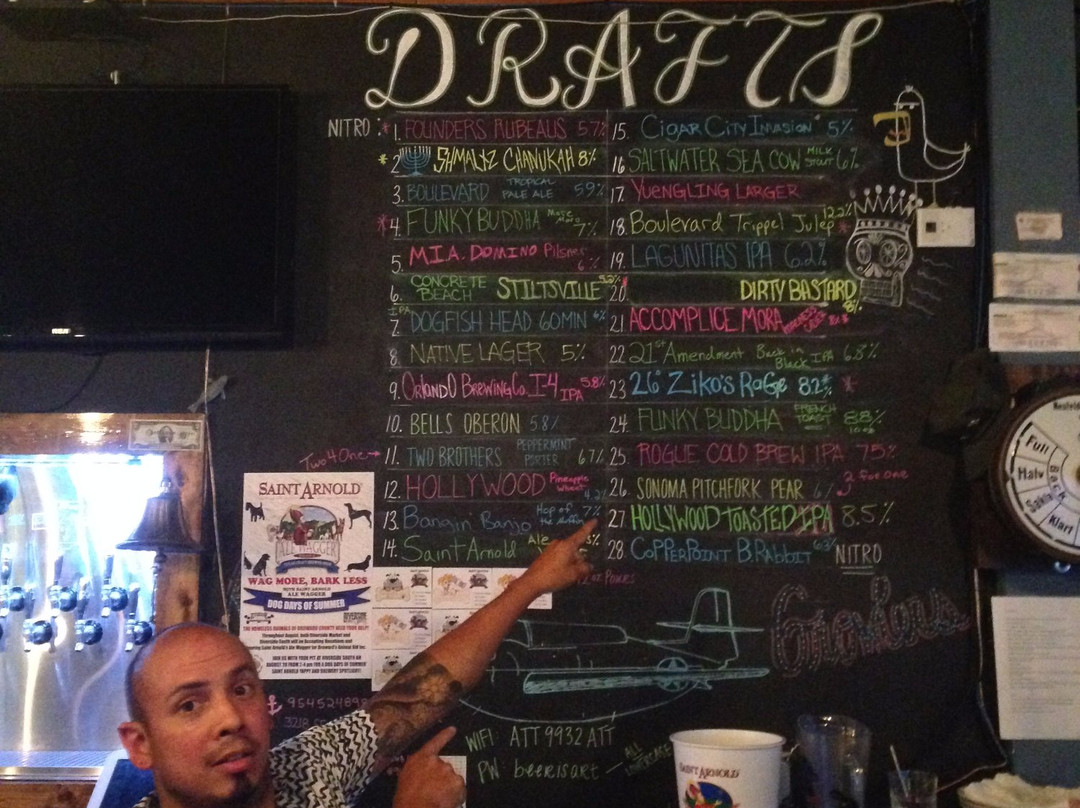 DRAFTS
NITRO: * 1. FOUNDERS RUBEAUS 5.7%
* 2 SHMALTZ CHANUKAH 8%
3. BOULEVARD TROPICAL PALE ALE 5.9%
* 4. FUNKY BUDDHA 7%
5. M.I.A. DOMINO Pilsner 6%
6. CONCRETE BEACH STILTSVILLE
IPA
7. DOGFISH HEAD 60 MIN 6%
8. NATIVE LAGER 5%
9. ORLANDO BREWING Co. I-4 IPA 5.8%
10. BELLS OBERON 5.8%
Two 4 One → 11. TWO BROTHERS PEPPERMINT PORTER 6.7%
12. HOLLYWOOD Pineapple Wheat 4.2%
13. Bangin' Banjo Hop of the 7%
14. Saint Arnold Ale
15. CIGAR CITY INVASION 5%
16 SALTWATER SEA COW MILK STOUT 6%
17. YUENGLING LARGER
18. Boulevard Trippel Julep 12.2% *
19. LAGUNITAS IPA 6.2%
20. DIRTY BASTARD 8%
21. ACCOMPLICE MORA
22. 21st Amendment Back in Black IPA 6.8%
23 26° ZIKO'S RAGE 8.2% *
24. FUNKY BUDDHA FRENCH TOAST 8.8%
25. ROGUE COLD BREW IPA 7.5%
26. SONOMA PITCHFORK PEAR 2 for One
27 HOLLYWOOD TOASTED IPA 8.5%
28. COPPERPOINT B. RABBIT 6.3% NITRO
SAINT ARNOLD
ALE WAGGER
WAG MORE, BARK LESS
WITH SAINT ARNOLD
ALE WAGGER
DOG DAYS OF SUMMER
954524898
3218
WIFI: ATT9932 ATT
PW: beerisart - ALL LOWERCASE
SAINT ARNOLD
RCA
Full
Halv
Back